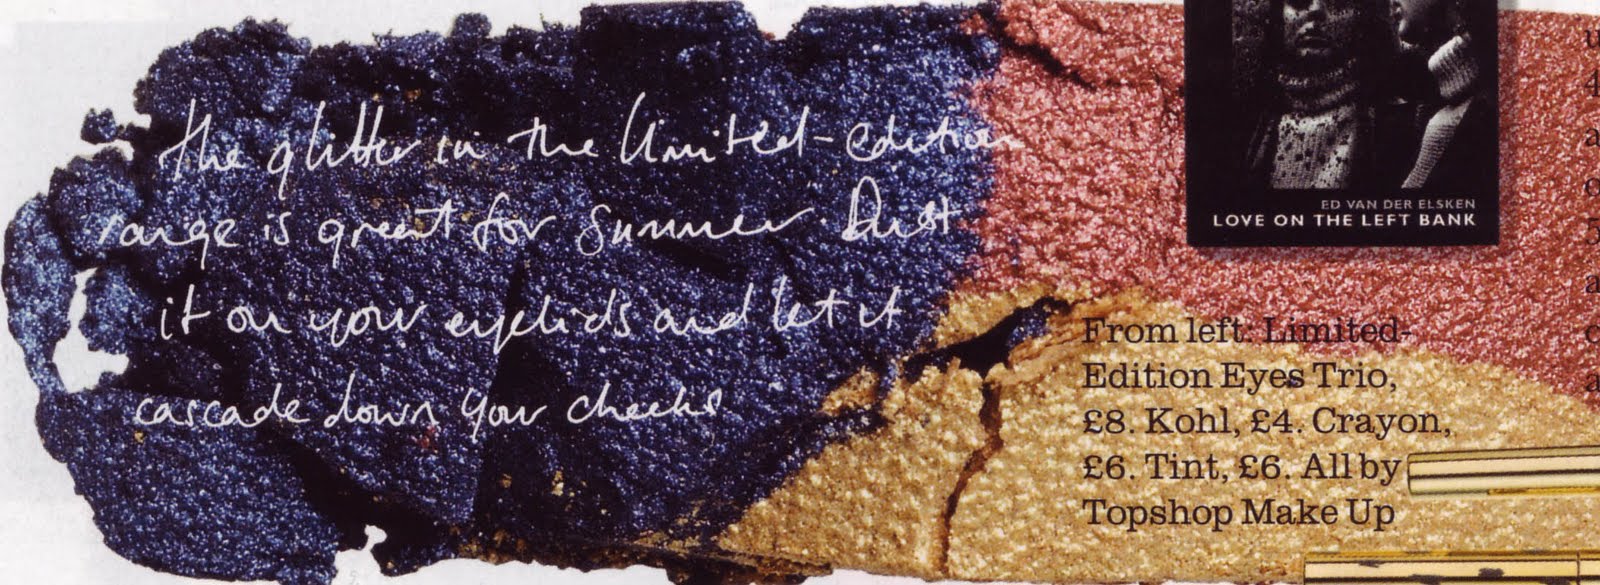 the glitter in the limited-edition
range is great for summer. Dust
it on your eyelids and let it
cascade down your cheeks
ED VAN DER ELSKEN
LOVE ON THE LEFT BANK
From left: Limited-
Edition Eyes Trio,
£8. Kohl, £4. Crayon,
£6. Tint, £6. All by
Topshop Make Up